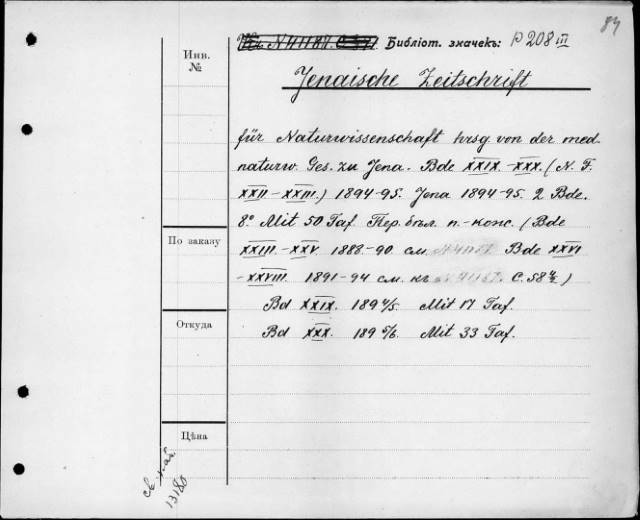 84
Библіот. значекъ: P 208 III
Инв.
№
Jenaische Zeitschrift
für Naturwissenschaft hrsg. von der med.
naturw. Ges. zu Jena. Bde XXIX.-XXX. (N. F.
XXII-XXIII.) 1894-95. Jena 1894-95. 2 Bde.
8° Mit 50 Taf. Пер. бѣл. п.-конс. (Bde
XXIII.-XXV. 1888.-90 см. Bde XXVI
По заказу
-XXVIII. 1891-94 см. къ С. 58 )
Bd XXIX. 1894/5. Mit 17 Taf.
Откуда
Bd XXX. 189 5/6. Mit 33 Taf.
Цѣна
13180